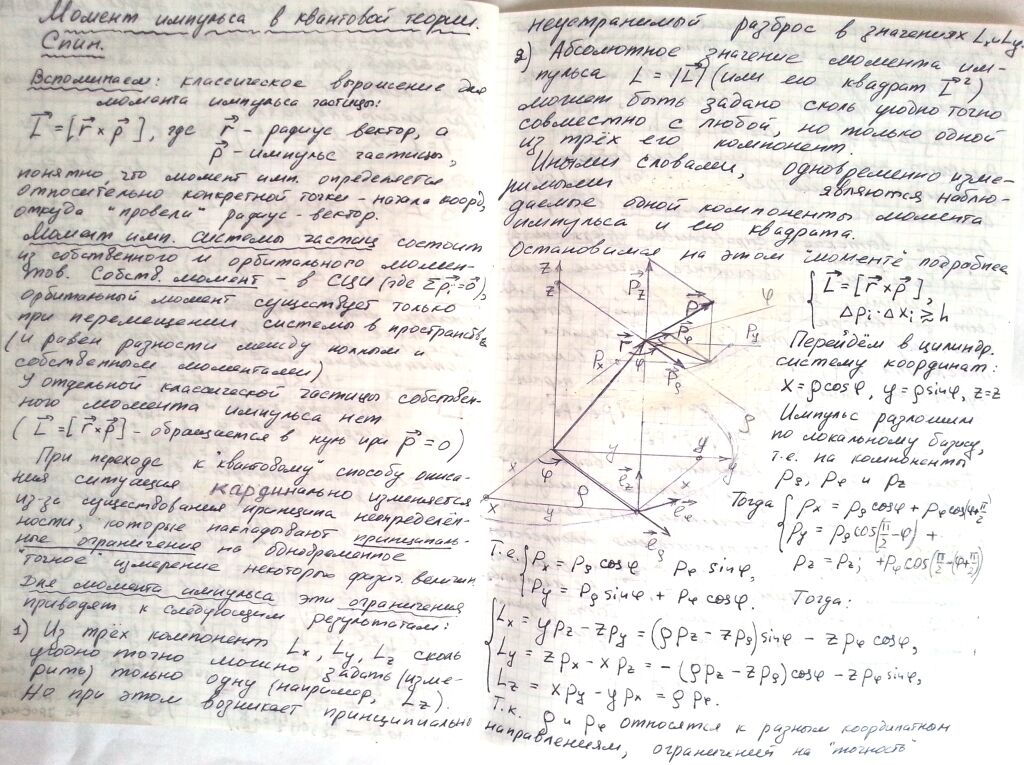 Момент импульса в квантовой теории.
Спин.
Вспоминаем: классическое выражение для
момента импульса частицы:
L⃗ = [r⃗ × p⃗], где r⃗ - радиус вектор, а
p⃗ - импульс частицы,
понятно, что момент имп. определяется
относительно конкретной точки - начала коорд,
откуда "провели" радиус-вектор.
Момент имп. системы частиц состоит
из собственного и орбитального момен-
тов. Собств. момент - в СЦИ (где Σp⃗i = 0⃗),
орбитальный момент существует только
при перемещении системы в пространстве
(и равен разности между полным и
собственным моментами)
У отдельной классической частицы собствен-
ного момента импульса нет
(L⃗ = [r⃗ × p⃗] - обращается в нуль при p⃗ = 0)
При переходе к "квантовому" способу описа-
ния ситуация кардинально изменяется
из-за существования принципа неопределён-
ности, которые накладывают принципаль-
ные ограничение на одновременное
"точное" измерение некоторых физич. величин
Для момента импульса эти ограничения
приводят к следующим результатам:
1) Из трёх компонент Lx, Ly, Lz сколь
угодно точно можно задать (изме-
рить) только одну (например, Lz).
Но при этом возникает принципиально
неустранимый разброс в значениях Lx и Ly.
2) Абсолютное значение момента им-
пульса L = |L⃗| (или его квадрат L⃗²)
может быть задано сколь угодно точно
совместно с любой, но только одной
из трёх его компонент.
Иными словами, одновременно изме-
римыми являются наблю-
даемые одной компоненты момента
импульса и его квадрата.
Остановимся на этом моменте подробнее
z
z
p⃗z
p⃗
φ
L⃗ = [r⃗ × p⃗],
Δpi · Δxi ≳ ħ
Перейдём в цилиндр.
систему координат:
x = ρcosφ, y = ρsinφ, z = z
Импульс разложим
по локальному базису,
т.е. на компоненты
pρ, pφ и pz
px
py
φ
p⃗ρ
r⃗
ρ
y
y
φ
ρ
e⃗z
x
x
y
e⃗φ
e⃗ρ
Тогда px = pρcosφ + pφcos(φ+π/2)
py = pρcos(π/2 - φ) +
pz = pz; + pφcos(π/2 - (φ+π/2))
Т.е. px = pρ cosφ pφ sinφ,
py = pρ sinφ + pφ cosφ. Тогда:
Lx = ypz - zpy = (ρpz - zpρ)sinφ - zpφ cosφ,
Ly = zpx - xpz = - (ρpz - zpρ)cosφ - zpφ sinφ,
Lz = xpy - ypx = ρpφ.
Т.к. ρ и pφ относятся к разным координатным
направлениям, ограничений на "точность"